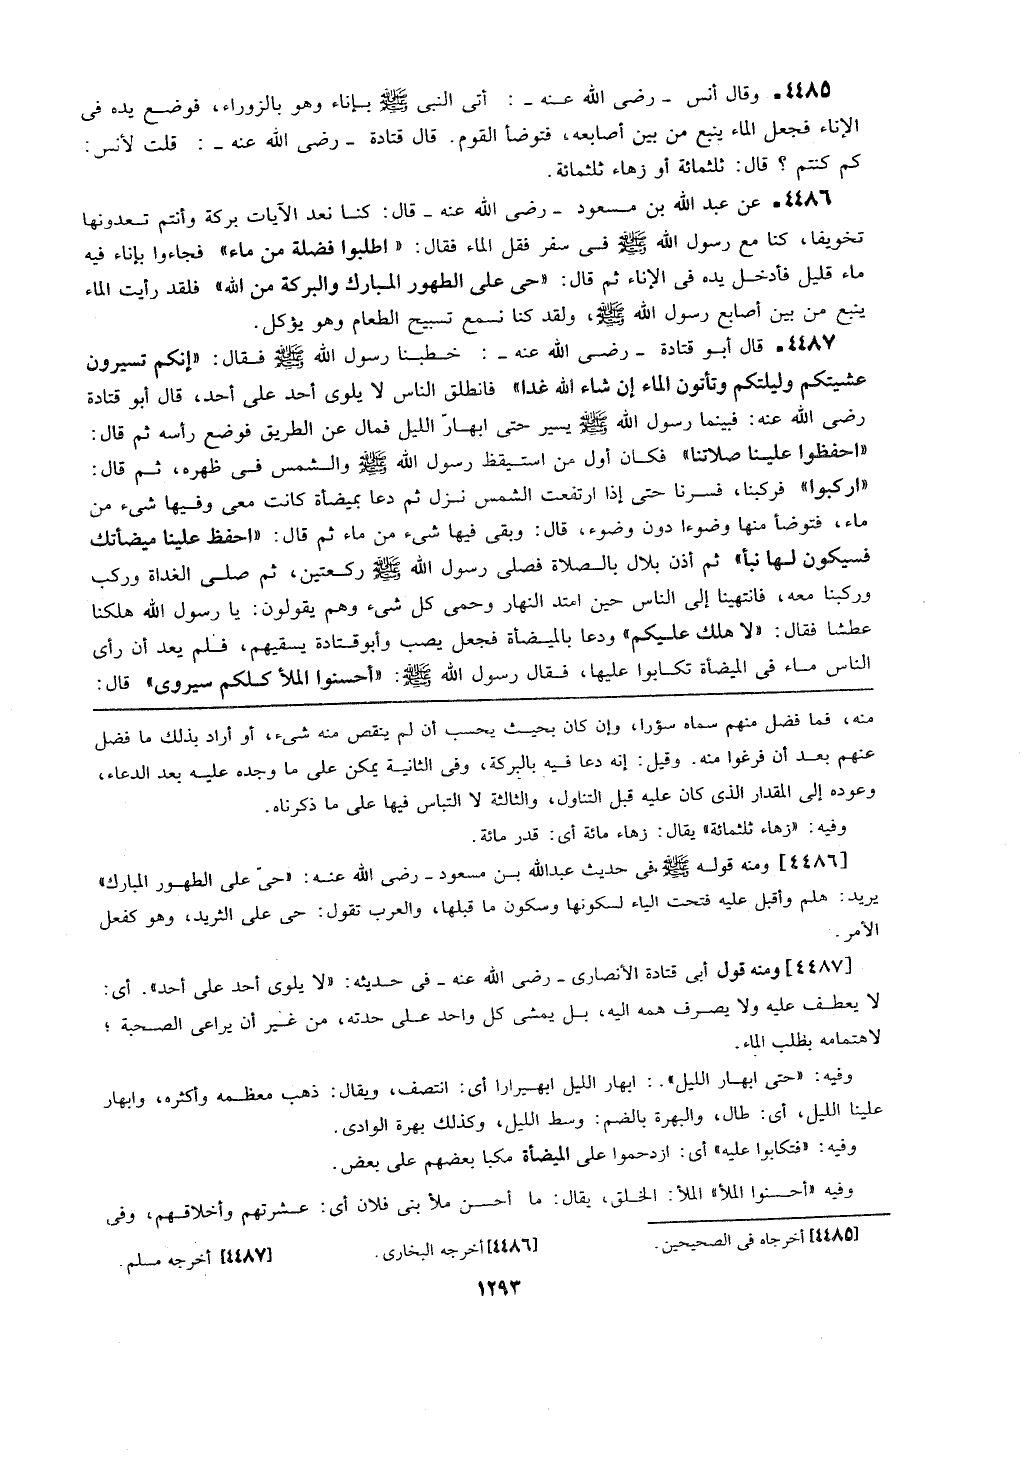 ٤٤٨٥. وقال أنس ـ رضى الله عنه ـ : أتى النبى ﷺ بإناء وهو بالزوراء، فوضع يده فى
الإناء فجعل الماء ينبع من بين أصابعه، فتوضأ القوم. قال قتادة ـ رضى الله عنه ـ : قلت لأنس:
كم كنتم ؟ قال: ثلثمائة أو زهاء ثلثمائة.
٤٤٨٦. عن عبد الله بن مسعود ـ رضى الله عنه ـ قال: كنا نعد الآيات بركة وأنتم تعدونها
تخويفا، كنا مع رسول الله ﷺ فى سفر فقل الماء فقال: « اطلبوا فضلة من ماء» فجاءوا بإناء فيه
ماء قليل فأدخل يده فى الإناء ثم قال: «حى على الطهور المبارك والبركة من الله» فلقد رأيت الماء
ينبع من بين أصابع رسول الله ﷺ، ولقد كنا نسمع تسبيح الطعام وهو يؤكل.
٤٤٨٧. قال أبو قتادة ـ رضى الله عنه ـ : خطبنا رسول الله ﷺ فقال: «إنكم تسيرون
عشيتكم وليلتكم وتأتون الماء إن شاء الله غدا» فانطلق الناس لا يلوى أحد على أحد، قال أبو قتادة
رضى الله عنه: فبينما رسول الله ﷺ يسير حتى ابهارّ الليل فمال عن الطريق فوضع رأسه ثم قال:
«احفظوا علينا صلاتنا» فكان أول من استيقظ رسول الله ﷺ والشمس فى ظهره، ثم قال:
«اركبوا» فركبنا، فسرنا حتى إذا ارتفعت الشمس نزل ثم دعا بميضأة كانت معى وفيها شىء من
ماء، فتوضأ منها وضوءا دون وضوء، قال: وبقى فيها شىء من ماء ثم قال: «احفظ علينا ميضأتك
فسيكون لها نبأ» ثم أذن بلال بالصلاة فصلى رسول الله ﷺ ركعتين، ثم صلى الغداة وركب
وركبنا معه، فانتهينا إلى الناس حين امتد النهار وحمى كل شىء وهم يقولون: يا رسول الله هلكنا
عطشا فقال: «لا هلك عليكم» ودعا بالميضأة فجعل يصب وأبوقتادة يسقيهم، فلم يعد أن رأى
الناس ماء فى الميضأة تكابوا عليها، فقال رسول الله ﷺ: «أحسنوا الملأ كلكم سيروى» قال:
منه، فما فضل منهم سماه سؤرا، وإن كان بحيث يحسب أن لم ينقص منه شىء، أو أراد بذلك ما فضل
عنهم بعد أن فرغوا منه. وقيل: إنه دعا فيه بالبركة، وفى الثانية يمكن على ما وجده عليه بعد الدعاء،
وعوده إلى المقدار الذى كان عليه قبل التناول، والثالثة لا التباس فيها على ما ذكرناه.
وفيه: «زهاء ثلثمائة» يقال: زهاء مائة أى: قدر مائة.
[٤٤٨٦] ومنه قوله ﷺ فى حديث عبدالله بن مسعود ـ رضى الله عنه: «حىّ على الطهور المبارك»
يريد: هلم وأقبل عليه فتحت الياء لسكونها وسكون ما قبلها، والعرب تقول: حى على الثريد، وهو كفعل
الأمر.
[٤٤٨٧] ومنه قول أبى قتادة الأنصارى ـ رضى الله عنه ـ فى حديثه: «لا يلوى أحد على أحد». أى:
لا يعطف عليه ولا يصرف همه اليه، بل يمشى كل واحد على حدته، من غير أن يراعى الصحبة ؛
لاهتمامه بظلب الماء.
وفيه: «حتى ابهار الليل». : ابهار الليل ابهيرارا أى: انتصف، ويقال: ذهب معظمه وأكثره، وابهار
علينا الليل، أى: طال، والبهرة بالضم: وسط الليل، وكذلك بهرة الوادى.
وفيه: «فتكابوا عليه» أى: ازدحموا على الميضأة مكبا بعضهم على بعض.
وفيه «أحسنوا الملأ» الملأ: الخلق، يقال: ما أحسن ملأ بنى فلان أى: عشرتهم وأخلاقهم، وفى
[٤٤٨٥] أخرجاه فى الصحيحين. [٤٤٨٦] أخرجه البخارى. [٤٤٨٧] أخرجه مسلم.
١٢٩٣